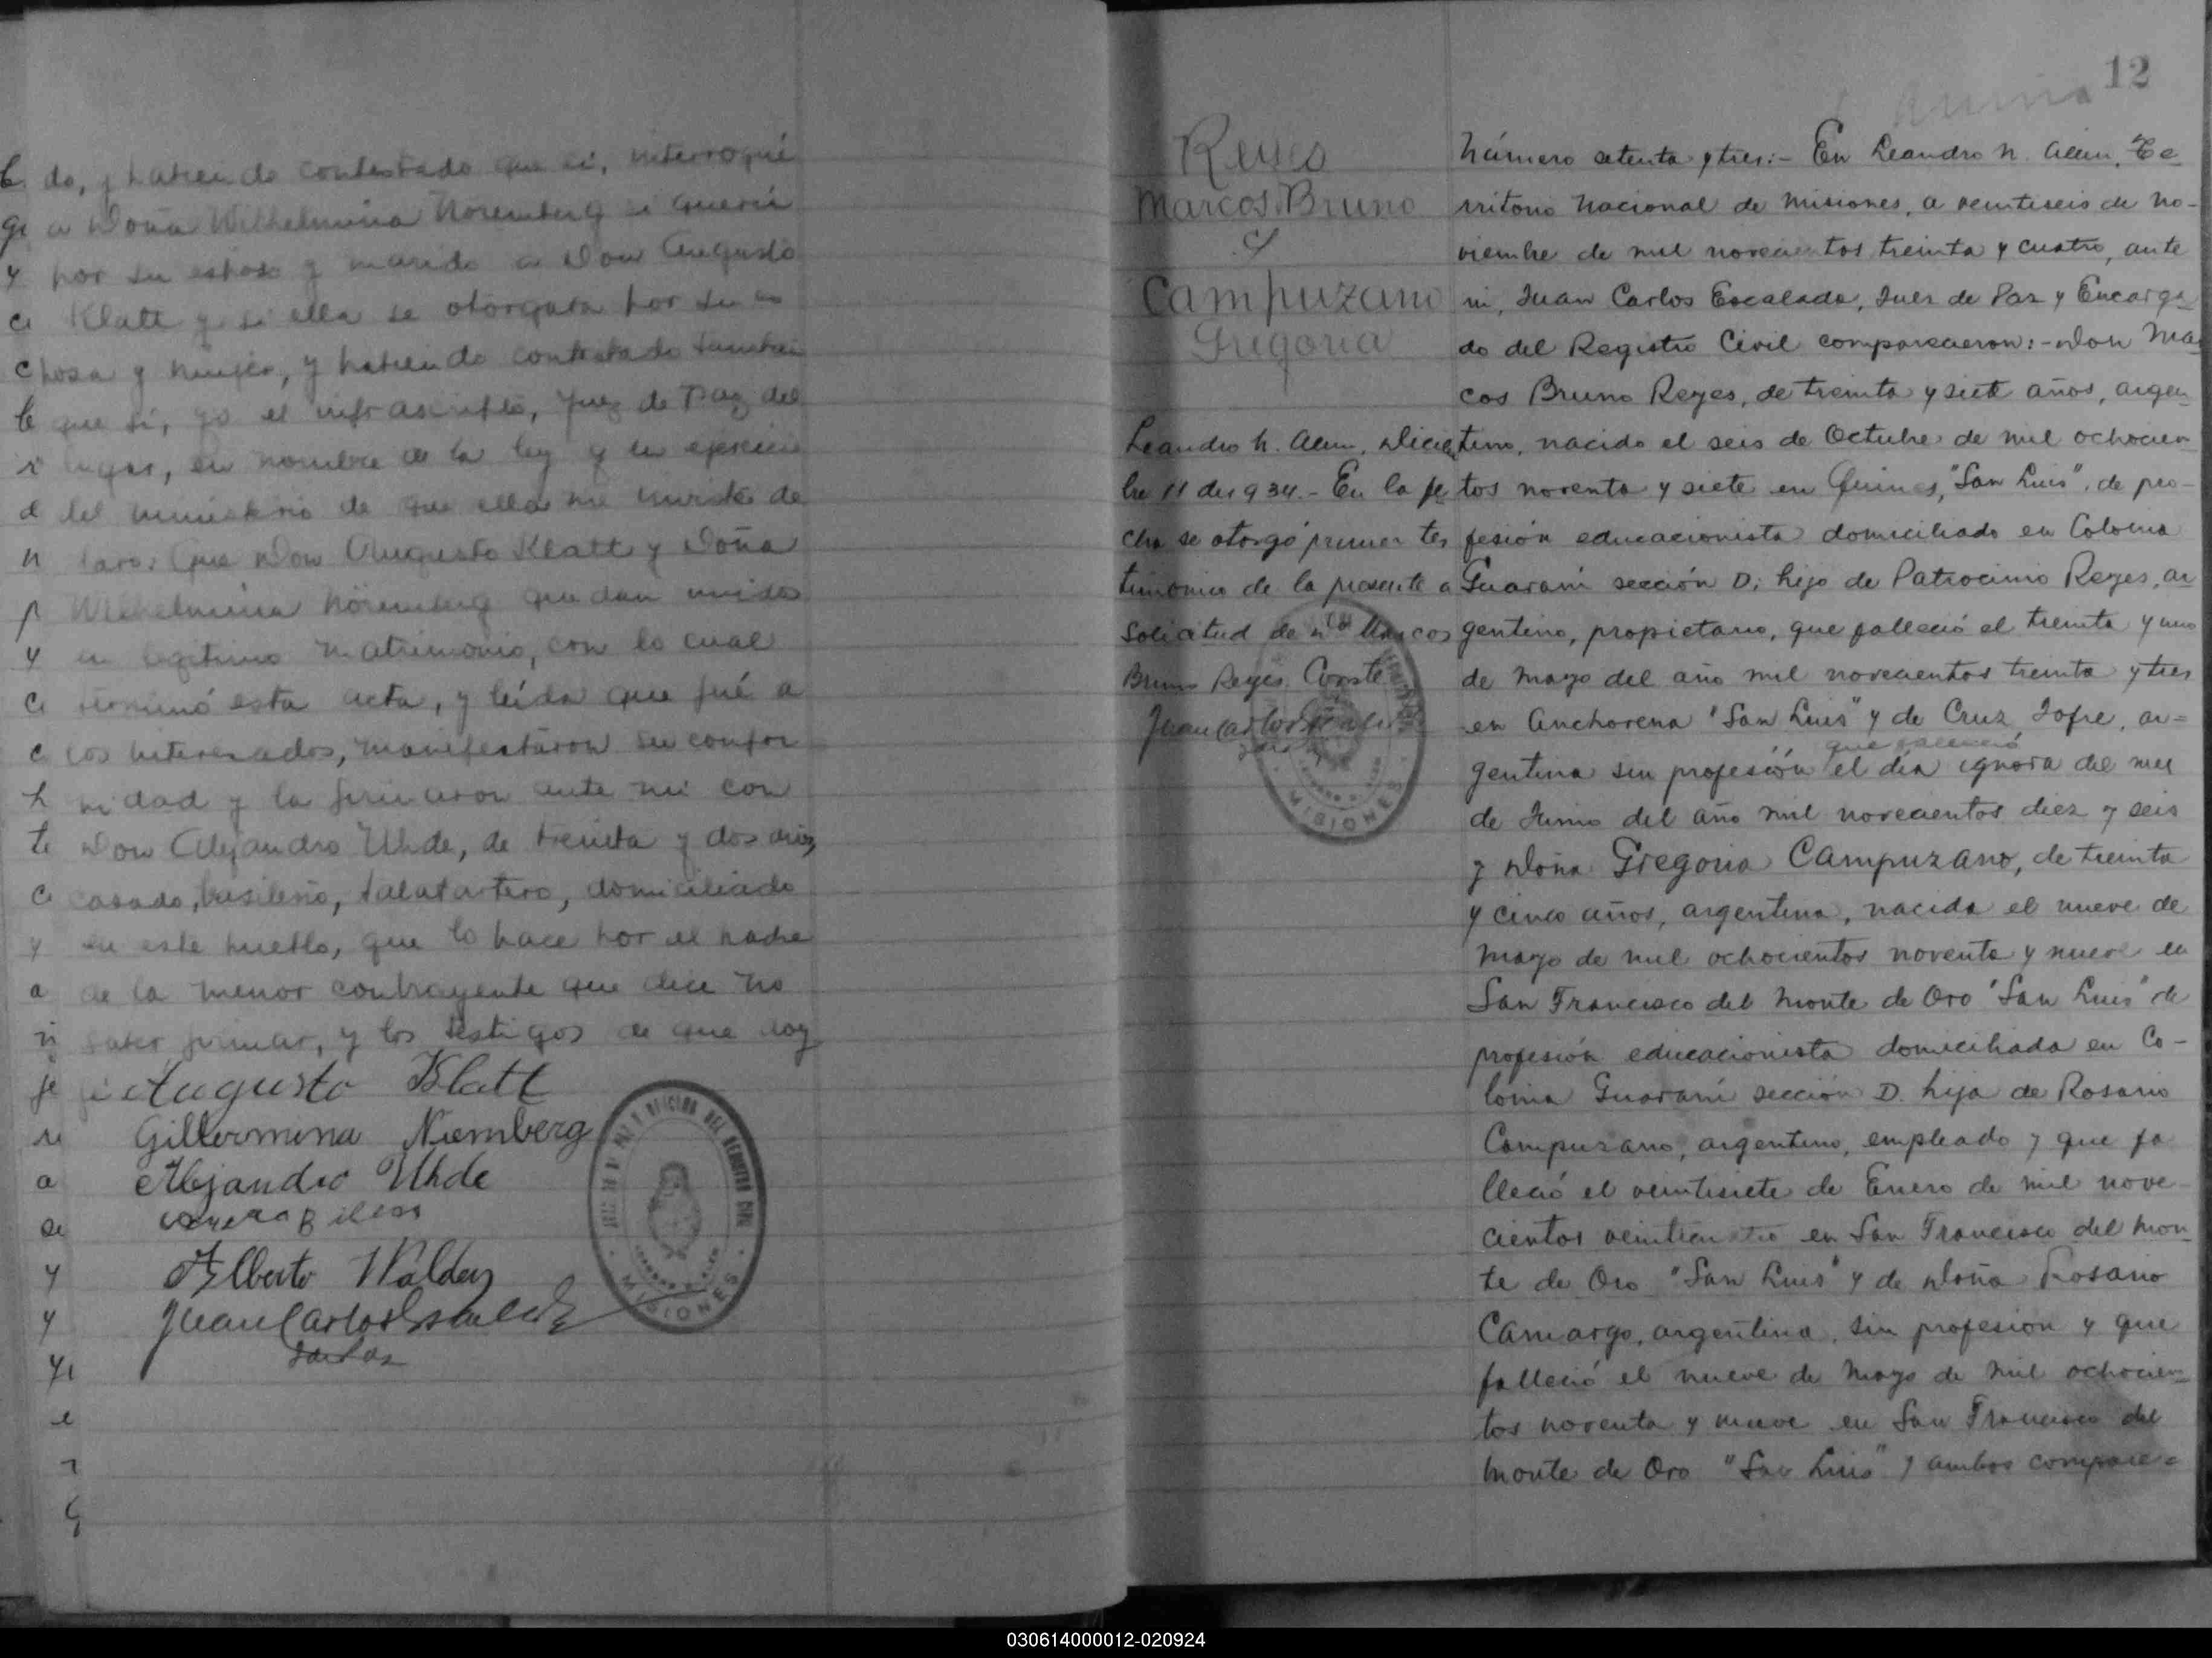 do, y habiendo contestado que sí, interrogué
a Doña Wilhelmina Noremberg si quería
por su esposo y marido a Don Augusto
Klatt y si ella se otorgaba por su es
posa y mujer, y habiendo contestado también
que sí, yo el infrascripto, Juez de Paz del
lugar, en nombre de la ley y en ejercicio
del ministerio de que ella me inviste de
claro: Que Don Augusto Klatt y Doña
Wilhelmina Noremberg quedan unidos
en legitimo matrimonio, con lo cual
terminó esta acta, y leída que fué a
los interesados, manifestaron su confor
midad y la firmaron ante mi con
Don Alejandro Uhde, de treinta y dos años,
casado, brasileño, talabartero, domiciliado
en este pueblo, que lo hace por el padre
de la menor contrayente que dice no
saber firmar, y los testigos de que doy
fé Augusto Klatt
Gillermina Niemberg
Alejandro Uhde
Alberto Walder
Juan Carlos Escalada
Juez Paz
JUZGADO DE PAZ Y OFICINA DEL REGISTRO CIVIL
MISIONES
12
Reyes
Marcos Bruno
y
Campuzano
Gregoria
Leandro N. Alem, Diciem
bre 11 de 1934.- En la fe
cha se otorgó primer tes
timonio de la presente a
solicitud de Marcos
Bruno Reyes. Conste
Juan Carlos Escalada
MISIONES
Número setenta y tres:- En Leandro N. Alem, Te
rritorio Nacional de Misiones, a veintiseis de No-
viembre de mil novecientos treinta y cuatro, ante
mi, Juan Carlos Escalada, Juez de Paz y Encarga
do del Registro Civil comparecieron:- Don Mar
cos Bruno Reyes, de treinta y siete años, argen
tino, nacido el seis de Octubre de mil ochocien
tos noventa y siete en Quines, "San Luis", de pro-
fesión educacionista domiciliado en Colonia
Guaraní sección D; hijo de Patrocinio Reyes, ar
gentino, propietario, que falleció el treinta y uno
de Mayo del año mil novecientos treinta y tres
en Anchorena "San Luis" y de Cruz Jofre, ar=
que falleció
gentina sin profesión el día ignora del mes
de Junio del año mil novecientos diez y seis
y Doña Gregoria Campuzano, de treinta
y cinco años, argentina, nacida el nueve de
Mayo de mil ochocientos noventa y nueve en
San Francisco del Monte de Oro "San Luis" de
profesión educacionista domiciliada en Co-
lonia Guaraní sección D. hija de Rosario
Campuzano, argentino, empleado y que fa
lleció el veintisiete de Enero de mil nove-
cientos veinticuatro en San Francisco del Mon
te de Oro "San Luis" y de Doña Rosario
Camargo, argentina, sin profesión y que
falleció el nueve de Mayo de mil ochocien
tos noventa y nueve en San Francisco del
Monte de Oro "San Luis" y ambos compare=
030614000012-020924